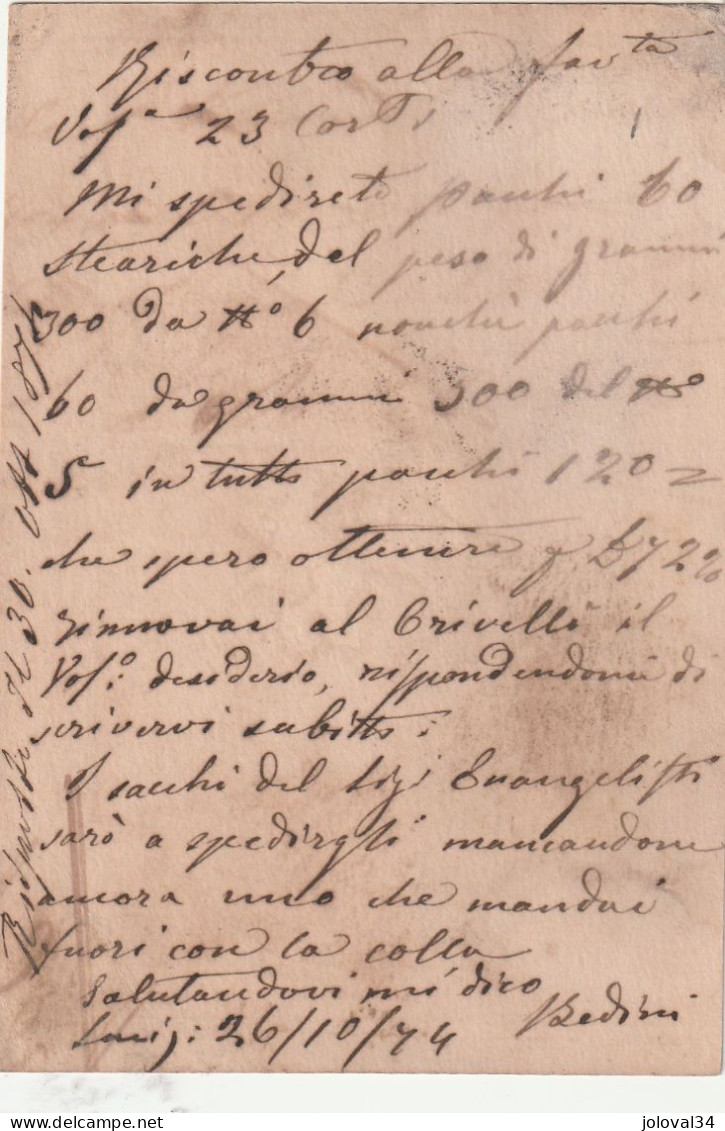 Riscontro alla
Vos.a 23 Corr.te
Mi spedirete pacchi 60
steariche, del peso di grammi
300 da No 6 nonchè pacchi
60 da grammi 500 del No
5 in tutto pacchi 120
che spero ottenere
rinnovai al Crivelli il
Vos.o desiderio, rispondendomi di
scrivervi subitto:
I sacchi del Sig. Evangelisti
sarò a spedirgli mancandone
ancora uno che mandai
fuori con la colla
Salutandovi mi dico
26/10/74 Bedini
Risposta il 30. Ott 1874
joloval34